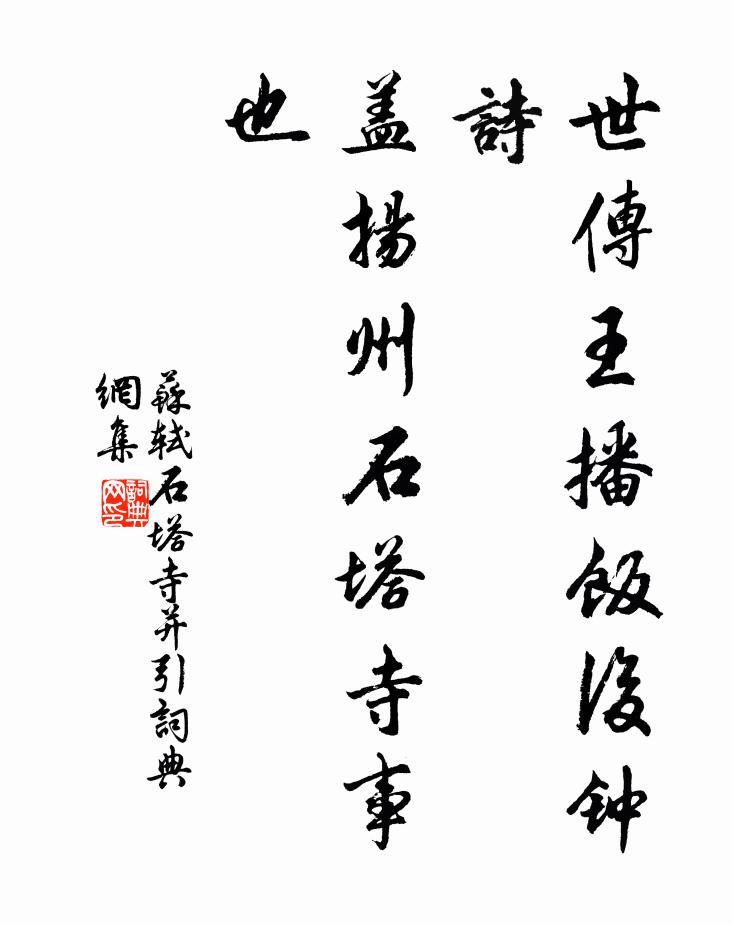 世傳王播飯後钟
詩
盖揚州石塔寺事
也
蘇軾石塔寺并引詞典
網集
詞典
网印